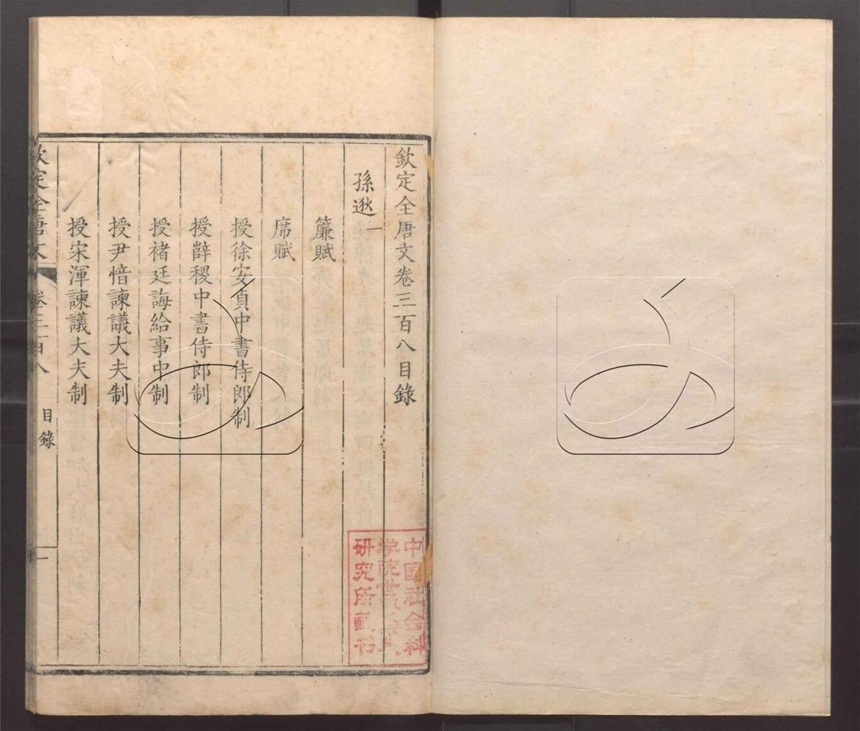 欽定全唐文卷三百八目錄
孫逖一
簾賦
席賦
授徐安貞中書侍郎制
授薛稷中書侍郎制
授褚廷誨給事中制
授尹愔諫議大夫制
授宋渾諫議大夫制
欽定全唐文 卷三百八 目錄 一
中國社会科
学院
研究所藏书